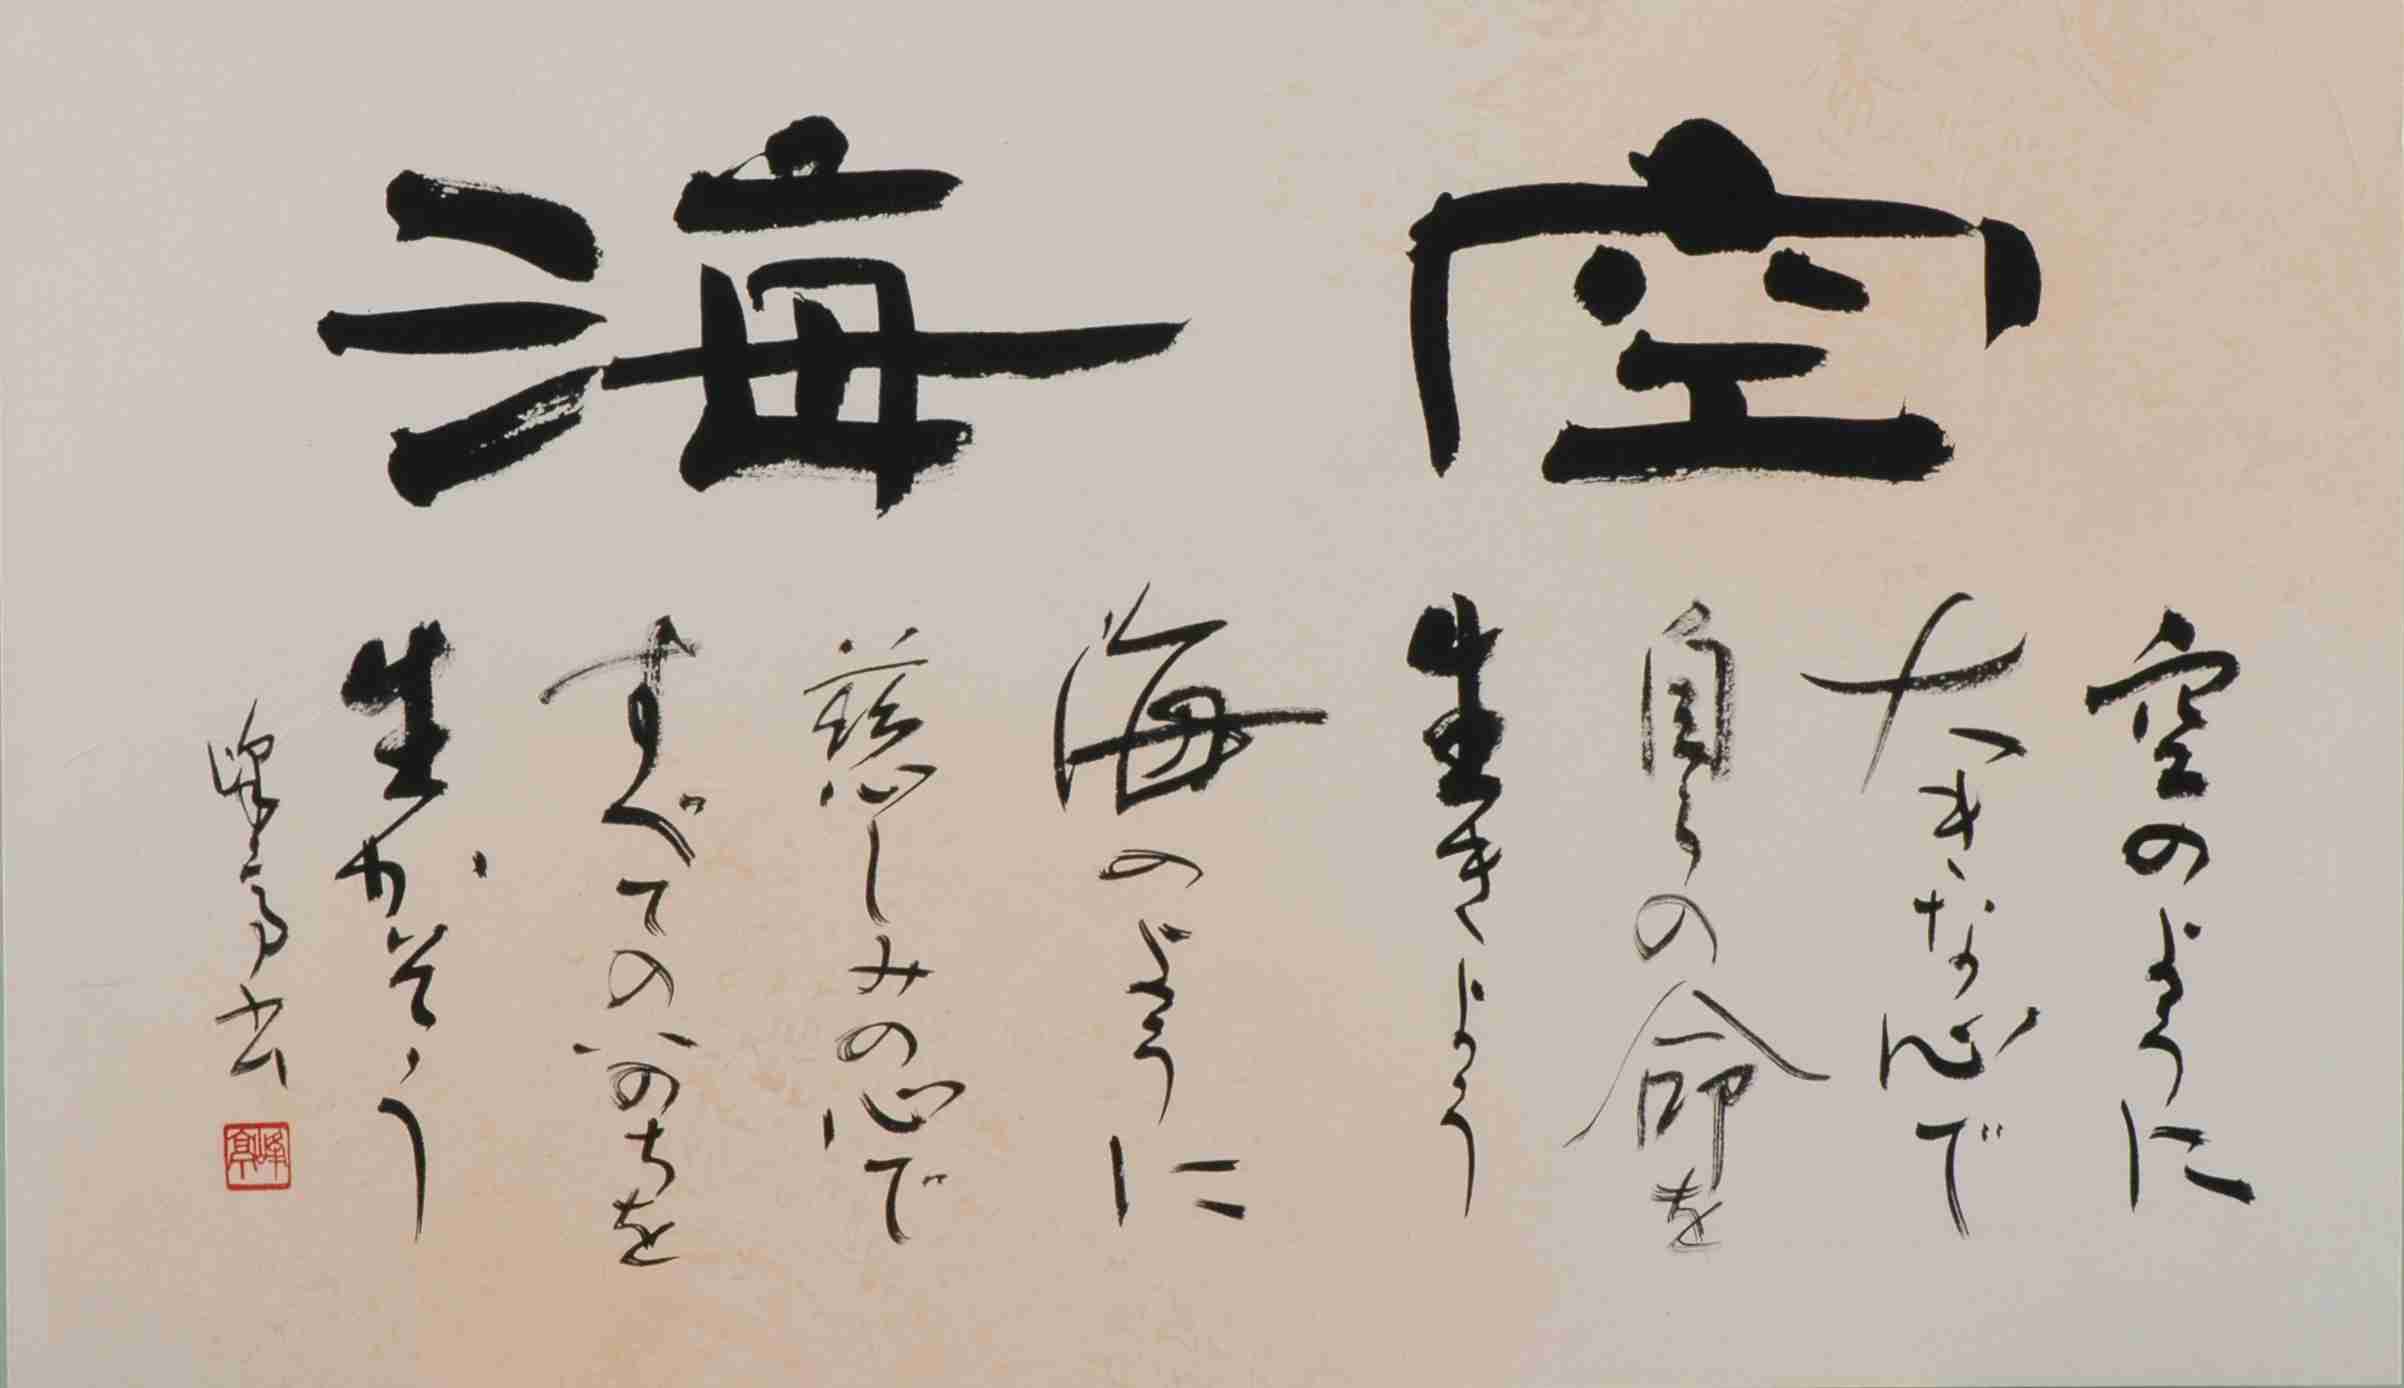 空海
空のように
大きな心で
自らの命を
生きよう
海のように
慈しみの心で
すべてのいのちを
生かそう
峰亭書
峰亭